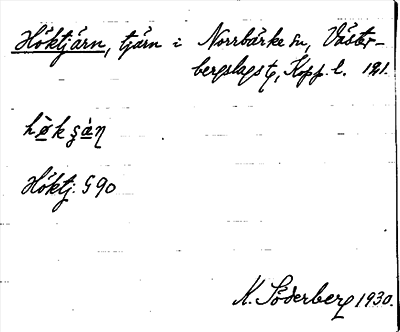 Höktjärn, tjärn i Norrbärke sn, Väster-
bergslags t, Kopp. l. 121.
Höktj. G 90
K. Söderberg 1930.